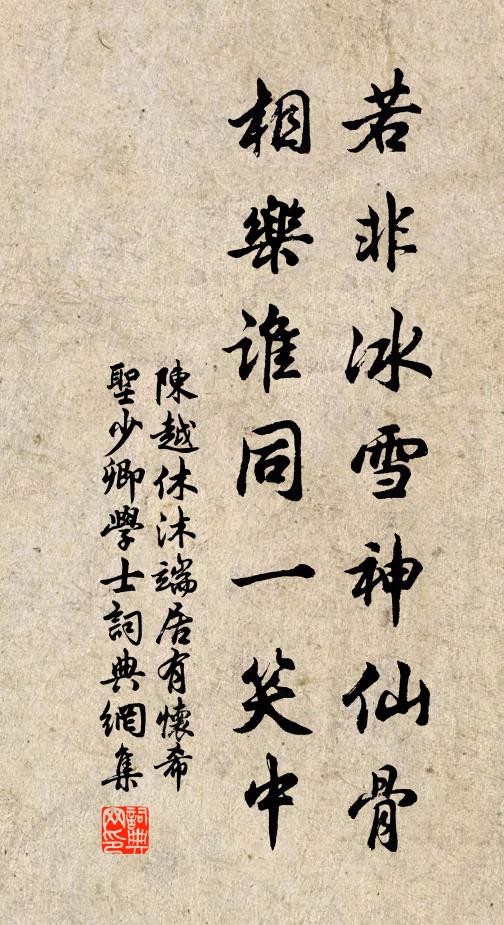 若非冰雪神仙骨
相樂誰同一笑中
陳越休沐端居有懷希
聖少卿學士詞典網集
詞典
网印